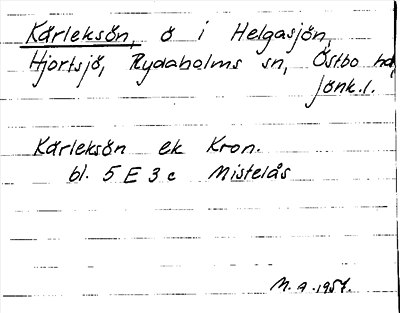 Kärleksön, ö i Helgasjön,
Hjortsjö, Rydaholms sn, Östbo hd,
Jönk.l.
Kärleksön ek Kron.
bl. 5 E 3 c Mistelås
M.A. 1957.